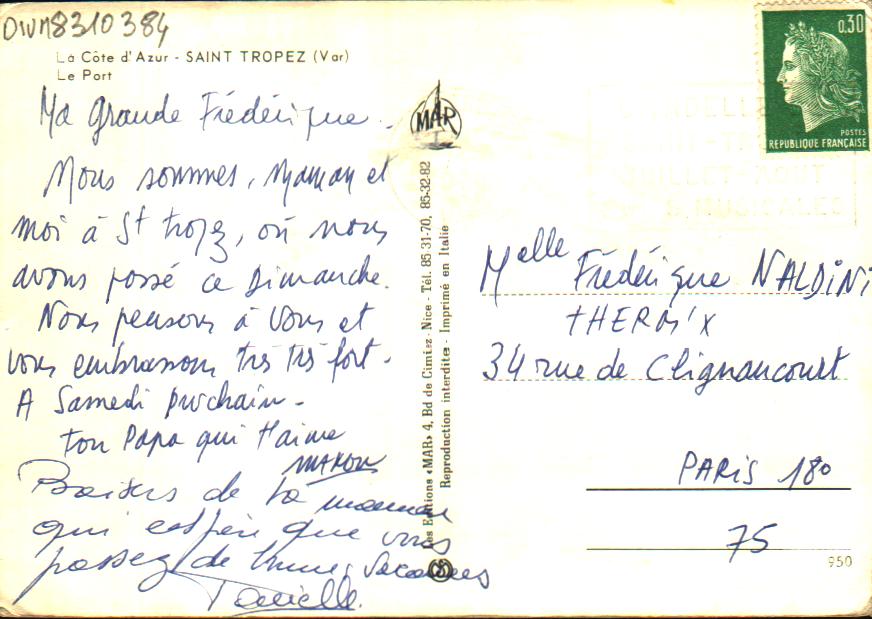 DWM8310384
La Côte d'Azur - SAINT TROPEZ (Var)
Le Port
Ma grande Frédérique.
Nous sommes, Maman et
moi à St tropez, où nous
avons passé ce Dimanche.
Nous pensons à Vous et
vous embrassons très très fort.
A Samedi prochain.
ton Papa qui t'aime
Baisers de ta maman
qui espère que vous
passez de bonnes vacances
Danielle.
MAR
Les Editions «MAR» 4, Bd de Cimiez - Nice - Tél. 85 31-70, 85-32-82
Reproduction interdite - Imprimé en Italie
0,30
POSTES
REPUBLIQUE FRANÇAISE
JUILLET AOUT
MUSICALES
Melle Frédérique NALDINI
34 rue de Clignancourt
PARIS 18°
75
950